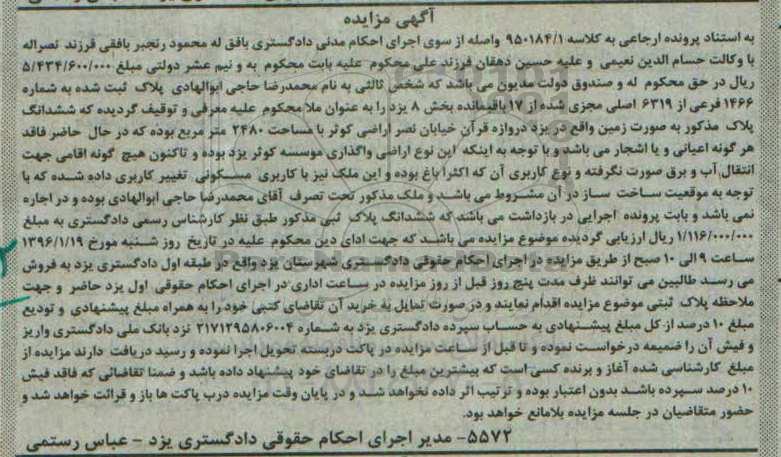 آگهی مزایده
به استناد پرونده ارجاعی به کلاسه ۹۵۰۱۸۴/۱ واصله از سوی اجرای احکام مدنی دادگستری بافق له محمود رنجبر بافقی فرزند نصراله
با وکالت حسام الدین نعیمی و علیه حسین دهقان فرزند علی محکوم علیه بابت محکوم به و نیم عشر دولتی مبلغ ۵/۴۳۴/۶۰۰/۰۰۰
ریال در حق محکوم له و صندوق دولت مدیون می باشد که شخص ثالثی به نام محمدرضا حاجی ابوالهادی پلاک ثبت شده به شماره
۱۴۶۶ فرعی از ۶۳۱۹ اصلی مجزی شده از ۱۷ باقیمانده بخش ۸ یزد را به عنوان ملا محکوم علیه معرفی و توقیف گردیده که ششدانگ
پلاک مذکور به صورت زمین واقع در یزد دروازه قرآن خیابان نصر اراضی کوثر با مساحت ۲۴۸۰ متر مربع بوده که در حال حاضر فاقد
هر گونه اعیانی و یا اشجار می باشد و با توجه به اینکه این نوع اراضی واگذاری موسسه کوثر یزد بوده و تاکنون هیچ گونه اقامی جهت
انتقال آب و برق صورت نگرفته و نوع کاربری آن که اکثرا باغ بوده و این ملک نیز با کاربری مسکونی تغییر کاربری داده شده که با
توجه به موقعیت ساخت ساز در آن مشروط می باشد و ملک مذکور تحت تصرف آقای محمدرضا حاجی ابوالهادی بوده و در اجاره
نمی باشد و بابت پرونده اجرایی در بازداشت می باشد که ششدانگ پلاک ثبی مذکور طبق نظر کارشناس رسمی دادگستری به مبلغ
۱/۱۱۶/۰۰۰/۰۰۰ ریال ارزیابی گردیده موضوع مزایده می باشد که جهت ادای دین محکوم علیه در تاریخ روز شنبه مورخ ۱۳۹۶/۱/۱۹
ساعت ۹ الی ۱۰ صبح از طریق مزایده در اجرای احکام حقوقی دادگستری شهرستان یزد واقع در طبقه اول دادگستری یزد به فروش
می رسد طالبین می توانند ظرف مدت پنج روز قبل از روز مزایده در ساعت اداری در اجرای احکام حقوقی اول یزد حاضر و جهت
ملاحظه پلاک ثبتی موضوع مزایده اقدام نمایند و در صورت تمایل به خرید آن تقاضای کتبی خود را به همراه مبلغ پیشنهادی و تودیع
مبلغ ۱۰ درصد از کل مبلغ پیشنهادی به حساب سپرده دادگستری یزد به شماره ۲۱۷۱۲۹۵۸۰۶۰۰۴ نزد بانک ملی دادگستری واریز
و فیش آن را ضمیعه درخواست نموده و تا قبل از ساعت مزایده در پاکت دربسته تحویل اجرا نموده و رسید دریافت دارند مزایده از
مبلغ کارشناسی شده آغاز و برنده کسی است که بیشترین مبلغ را در تقاضای خود پیشنهاد داده باشد و ضمنا تقاضائی که فاقد فیش
۱۰ درصد سپرده باشد بدون اعتبار بوده و ترتیب اثر داده نخواهد شد و در پایان وقت مزایده درب پاکت ها باز و قرائت خواهد شد و
حضور متقاضیان در جلسه مزایده بلامانع خواهد بود.
۵۵۷۲- مدیر اجرای احکام حقوقی دادگستری یزد - عباس رستمی